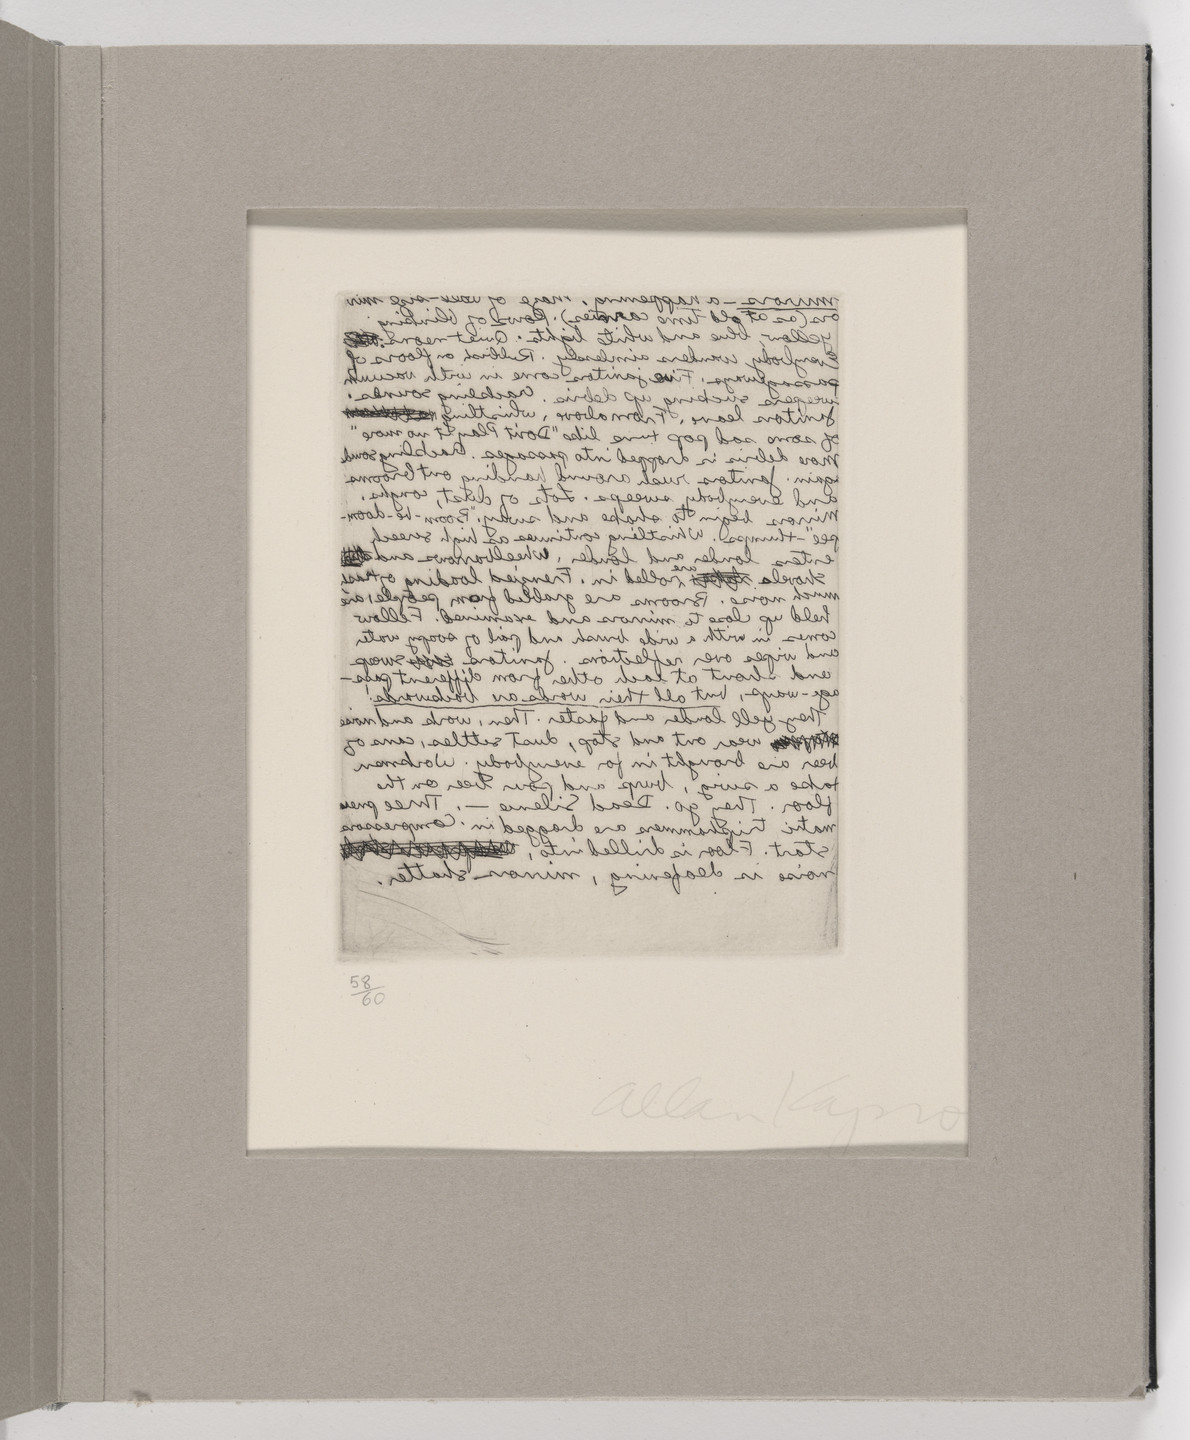 mirrors – a happening, maze of wall-size mirr
ors (as at old time carnies). Rows of blinking
yellow, blue and white lights. Quiet neons.
Everybody wanders aimlessly. Rubbish on floors of
passageways. Five janitors come in with vacuum
sweepers sucking up debris. Crackling sounds.
Janitors leave. From above, whistling
of some sad pop tune like "Don't Play It no more"
More debris is dropped into passages. Crackling sound
again. Janitors rush around handing out brooms
and everybody sweeps. Lots of dust, coughs.
Mirrors begin to shake and sway. "Boom-be-doom-
pee"-thumps). Whistling continues as high screech
enters louder and louder. Wheelbarrows and
shovels are rolled in. Frenzied loading of trash
much noise. Brooms are grabbed from people, are
held up close to mirrors and examined. Fellow
comes in with a wide brush and pail of soapy water
and wipes over reflections. Janitors sweep
and shout at each other from different pass-
age-ways, but all their words are backwards!
They yell louder and faster. Then, work and noise
wear out and stop, dust settles, cans of
beer are brought in for everybody. Workmen
take a swig, burp and pour beer on the
floor. They go. Dead Silence –. Three pneu
matic triphammers are dragged in. Compressors
start. Floor is drilled into,
noise is deafening, mirrors shatter.
58/60
Allan Kaprow